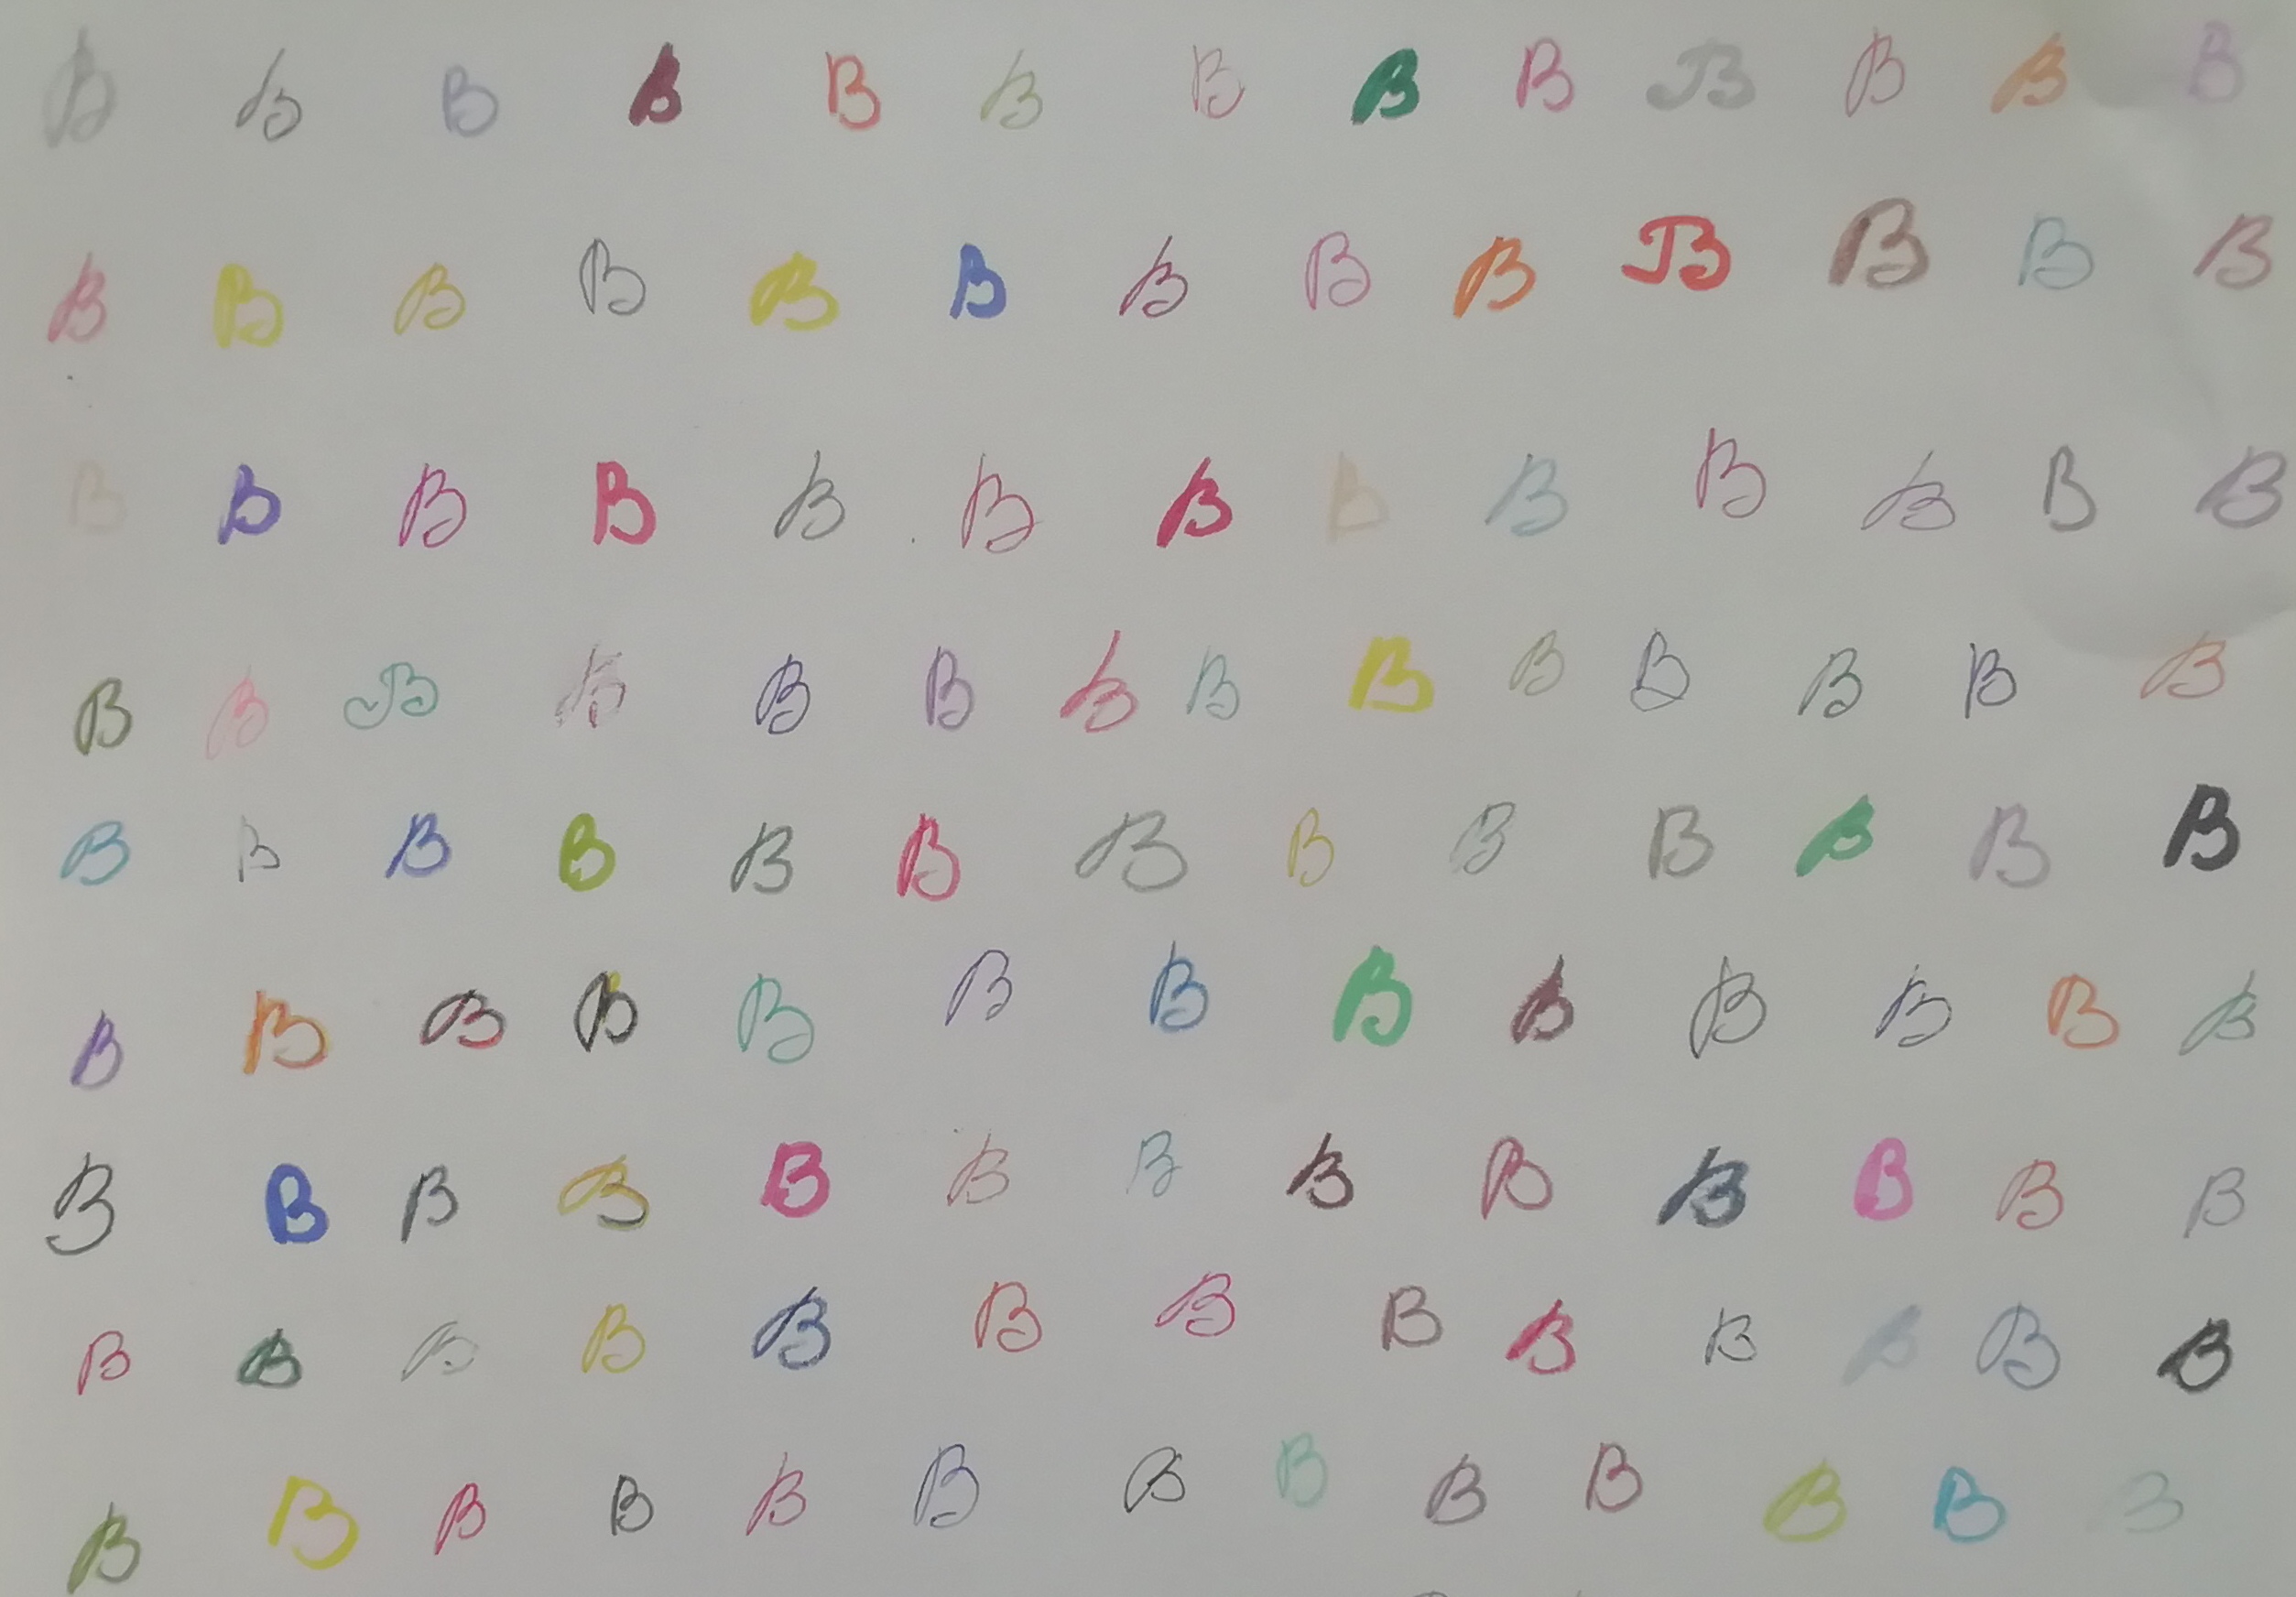 B B B B B B B B B B B B B
B B B B B B B B B B B B B
B B B B B B B B B B B B B
B B B B B B B B B B B B B B
B B B B B B B B B B B B B
B B B B B B B B B B B B B
B B B B B B B B B B B B B
B B B B B B B B B B B B B
B B B B B B B B B B B B B